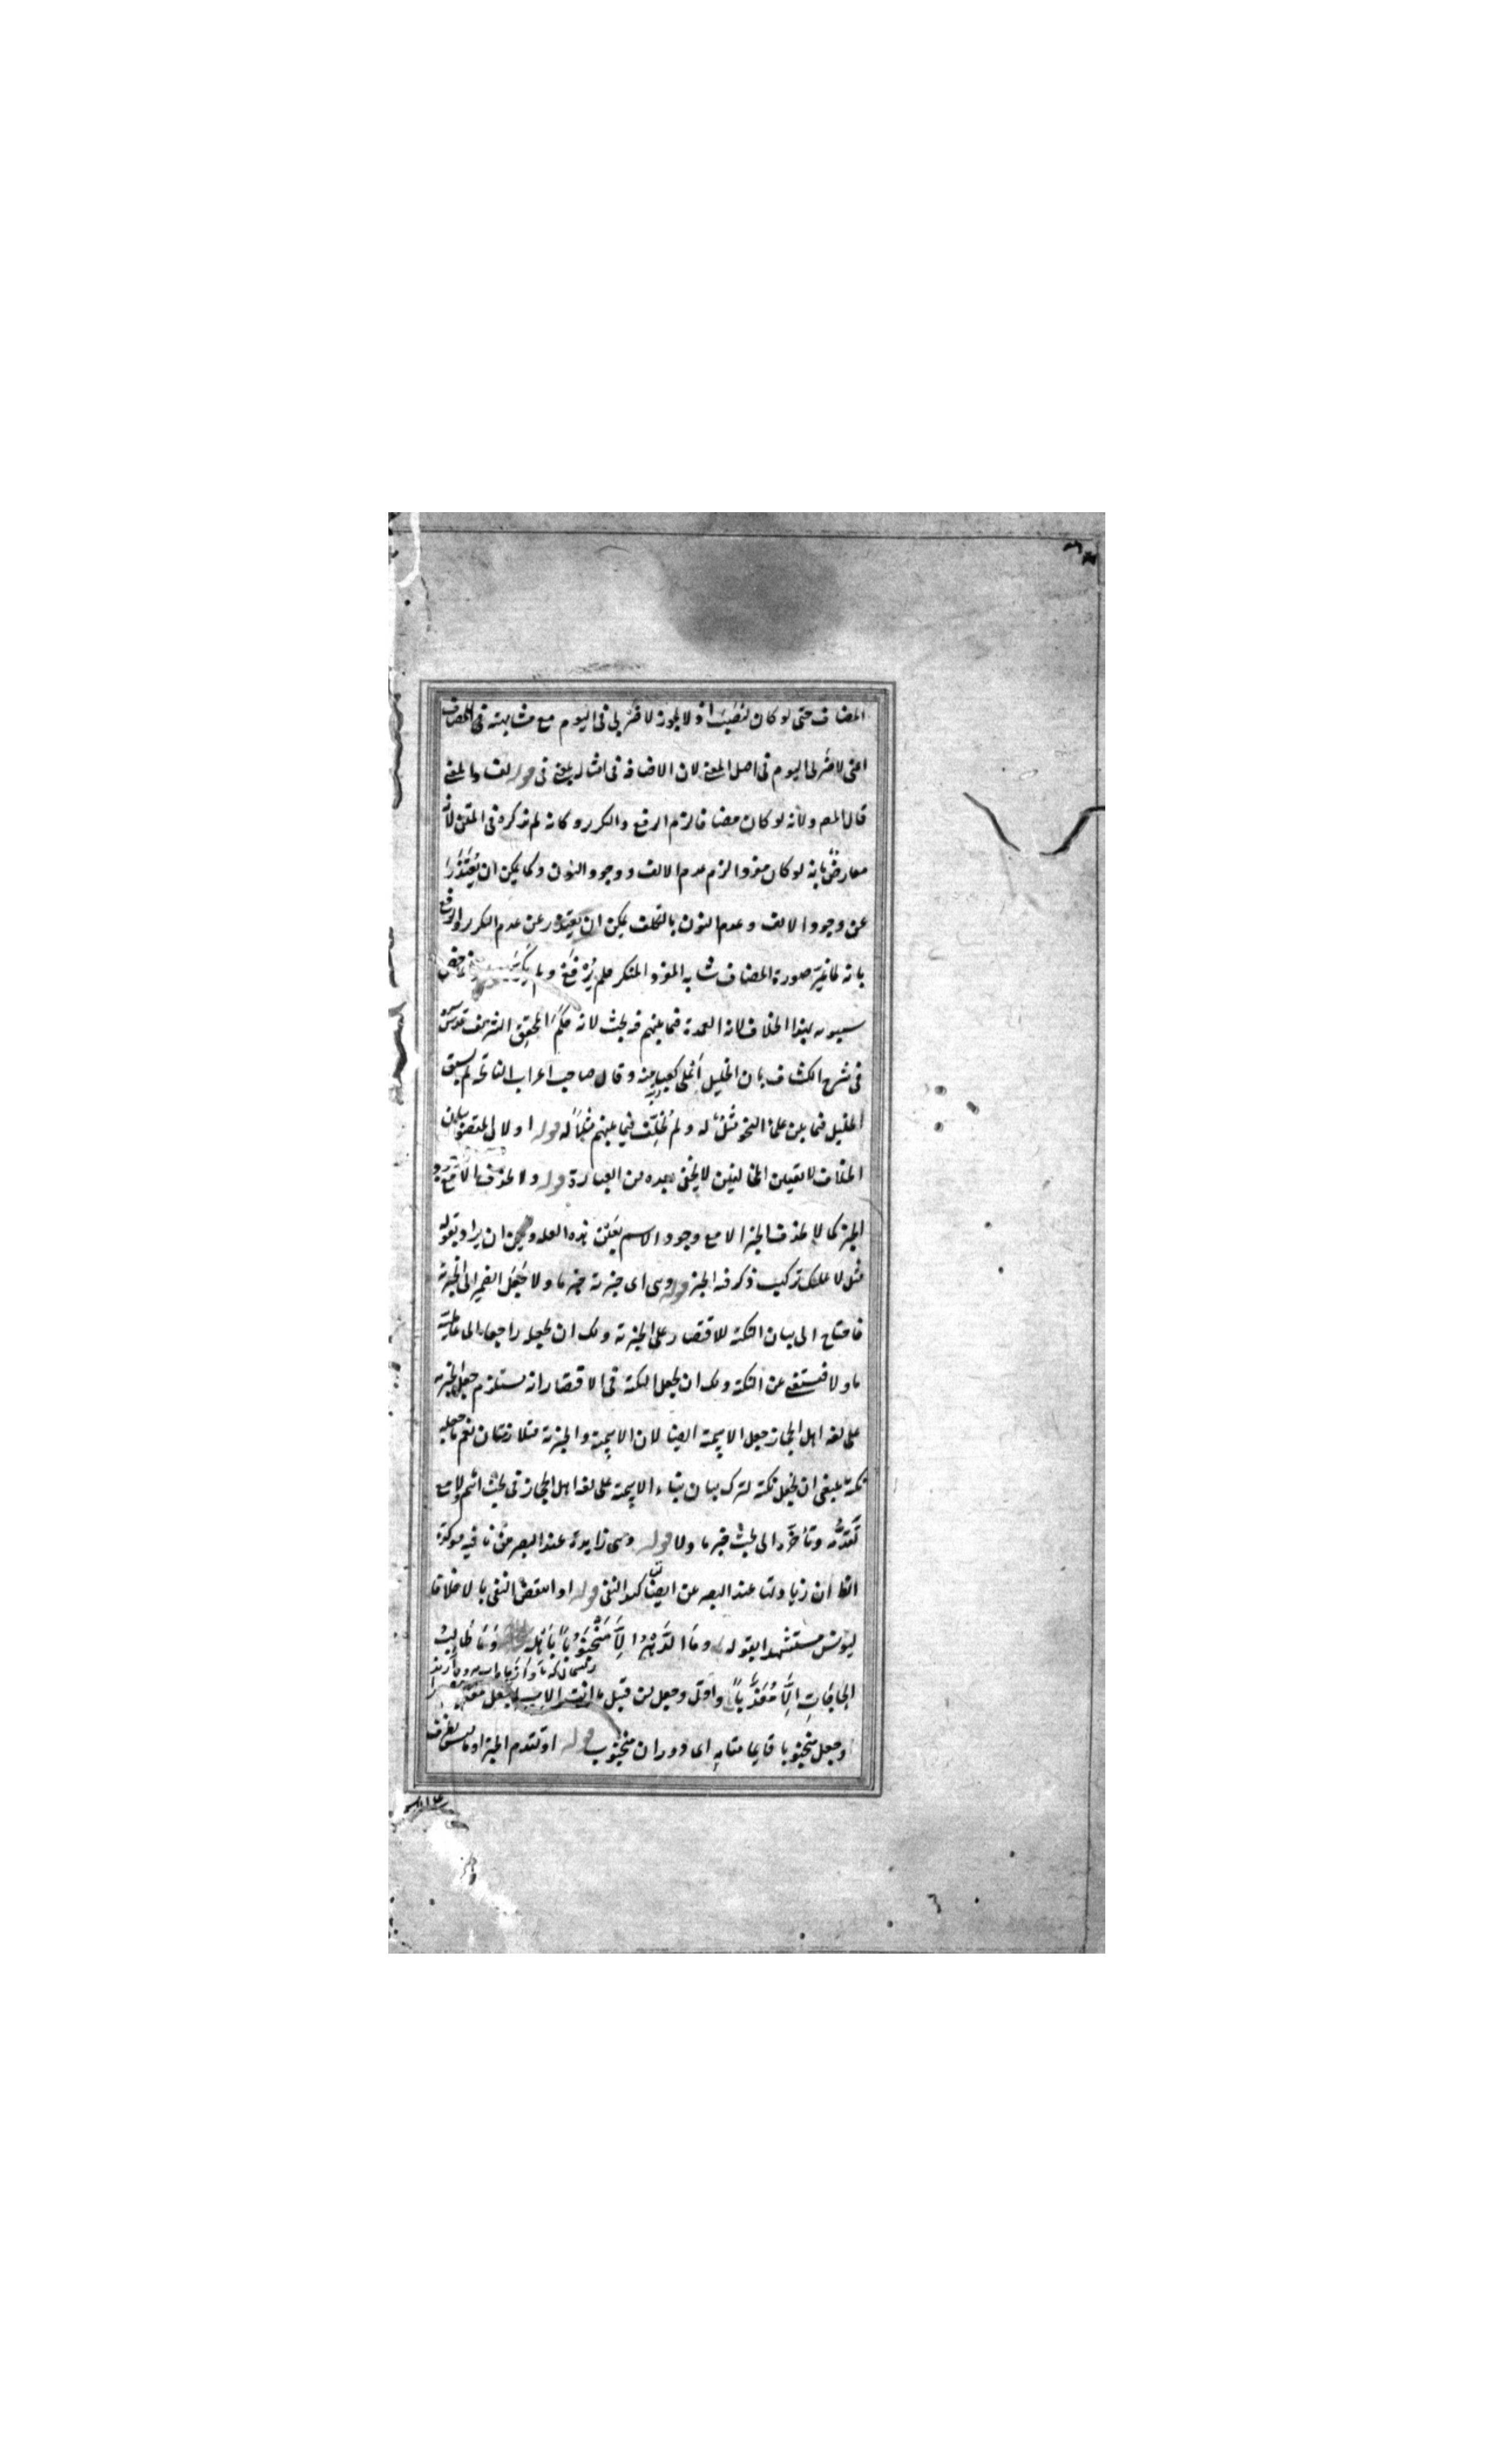 المضاف حتى لو كان لنصب او لا يجوز لا ضربى فى اليوم مع مشابهته فى المضاف
اعنى لا ضربى اليوم فى اصل المعنى لان الاضافة فى امثاله بمعنى فى قوله لفساد المعنى
قال المصـ ولانه لو كان مضافا لزم الرفع والتكرر وكانه لم يذكره فى المتن لانه
معارض بانه لو كان مفردا لزم عدم الالف ووجود النون وكما يمكن ان يعتذر
عن وجود الالف وعدم النون بالتكلف يمكن ان يعتذر عن عدم التكرر والرفع
بانه لما غير صورة المضاف شابه المفرد المنكر فلم يرفع ولم يكرر
سيبويه بهذا الخلاف لانه العمدة فيما بينهم فيه بحث لانه حكم المحقق الشريف قدس سره
فى شرح الكشاف بان الخليل اعلى كعبا منه وقال صاحب اعراب الفاتحة لم يسبق
الخليل فيما بين علماء النحو مثله ولم يخلف فيما بينهم مثلا له قوله اولا لى المقصود بيان
الخلاف لا تعيين المخالفين لا يخفى بعده من العبارة قوله ولا يحذف الا مع وجود
الخبر كما لا يحذف الخبر الا مع وجود الاسم بعين هذه العلة ويمكن ان يراد بقوله
مثل لا عليك تركيب ذكر فيه الخبر قوله وهى اى خبرية خبر ما ولا جعل الضمير الى الخبرية
فاحتاج الى بيان النكتة للاقتصار على الخبرية ولك ان تجعله راجعا الى عاملية
ما ولا فتستغنى عن النكتة ولك ان تجعل النكتة فى الاقتصار انه يستلزم جعل الخبرية
على لغة اهل الحجاز جعل الاسمية ايضا لان الاسمية والخبرية متلازمتان نعم ما جعله
نكتة ينبغى ان يجعل نكتة لترك بيان بناء الاسمية على لغة اهل الحجاز فى بحث اسم ما ولا مع
تقدمه وتأخره الى بحث خبر ما ولا قوله وهى زايدة عند البصر من نافية موكدة
الظ ان زيادتها عند البصر عن ايضا تاكيد النفى قوله او انتقض النفى بالا خلافا
ليونس مستشهدا بقوله وَمَا الدَّهْرُ اِلَّا مَنْجَنُوناً بِاَهْلِهِ وَمَا طَالِبُ
الحَاجَاتِ اِلَّا مُعَذَّباً واوّل وجعل من قبيل ما انت الا سيرا بجعل معذبا
وجعل منجنونا قايما مقامه اى دوران منجنون قوله او تقدم الخبر اوما ليس بظرف